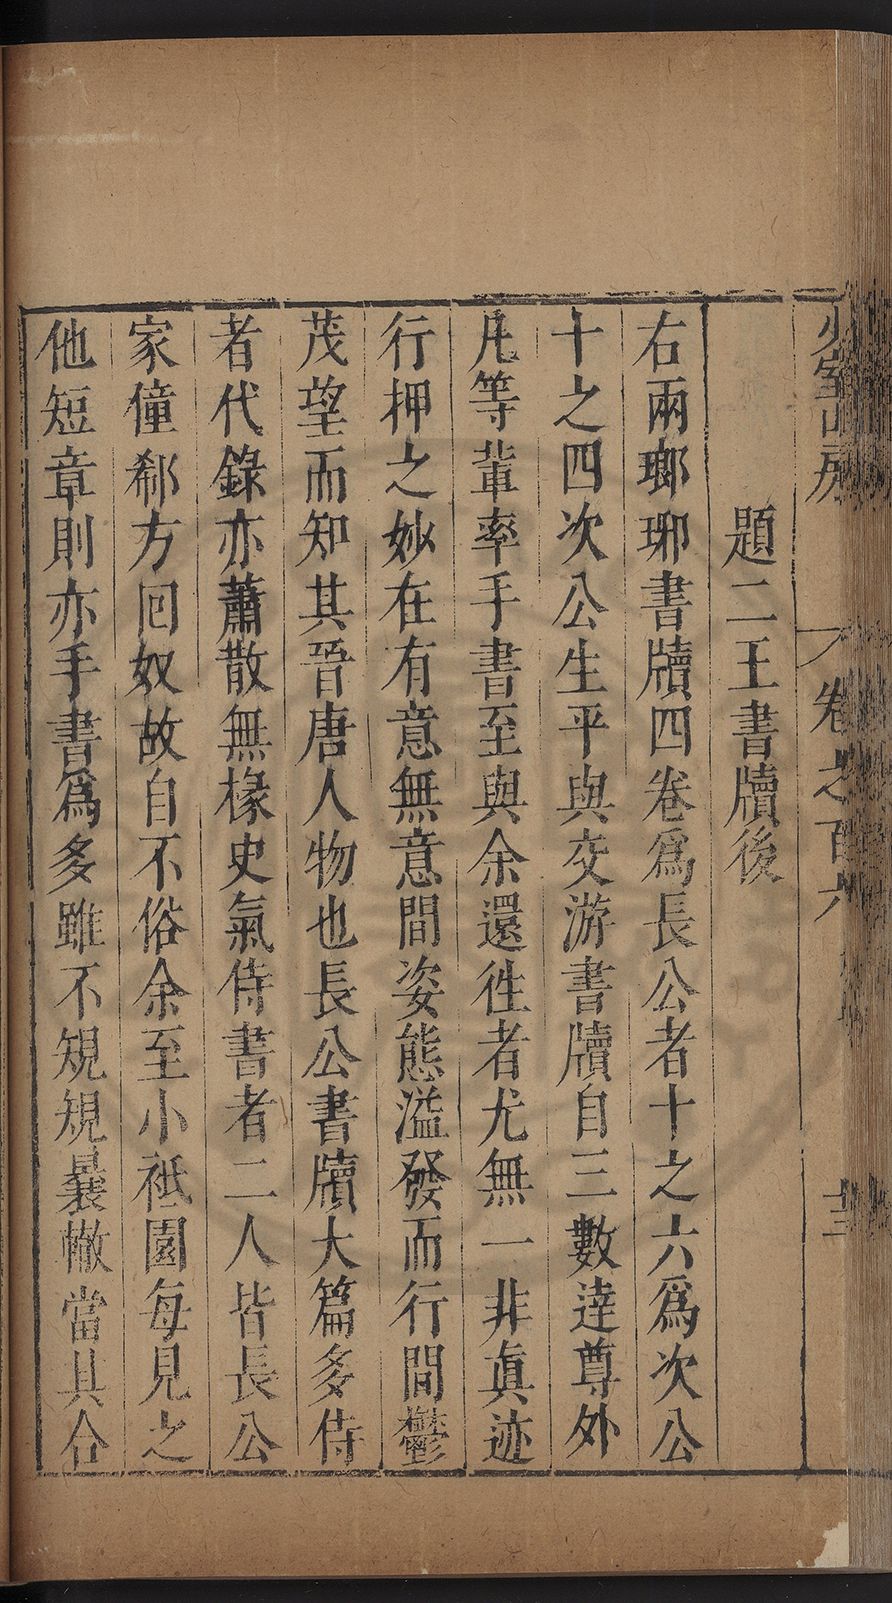 少室山房
卷之百六
十三
題二王書牘後
右兩瑯琊書牘四卷爲長公者十之六爲次公
十之四次公生平與交游書牘自三數達尊外
凡等輩率手書至與余還徃者尤無一非眞迹
行押之妙在有意無意間姿態溢發而行間鬱
茂望而知其晉唐人物也長公書牘大篇多侍
者代錄亦蕭散無椽史氣侍書者二人皆長公
家僮郗方囘奴故自不俗余至小祗園每見之
他短章則亦手書爲多雖不規規曩轍當其合